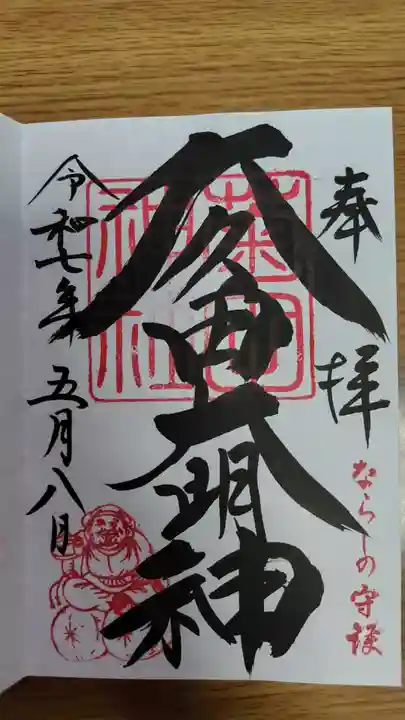 奉拝
ならしの守護
久々田大明神
菊田
神社
令和七年五月八日